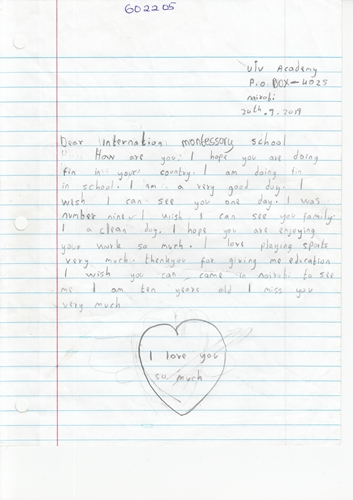 602205
VIV Academy
P.O. BOX - 4025
nairobi
20th. 9. 2019
Dear international montessory school
How are you. I hope you are doing
fin in your country. I am doing fin
in school. I am a very good day. I
wish I can see you one day. I was
number nine. I wish I can see you family.
I a clean day. I hope you are enjoying
your work so much. I love playing sports
very much. thankyou for giving me education
I wish you can came in nairobi to see
me I am ten years old I miss you
very much
I love you
so much